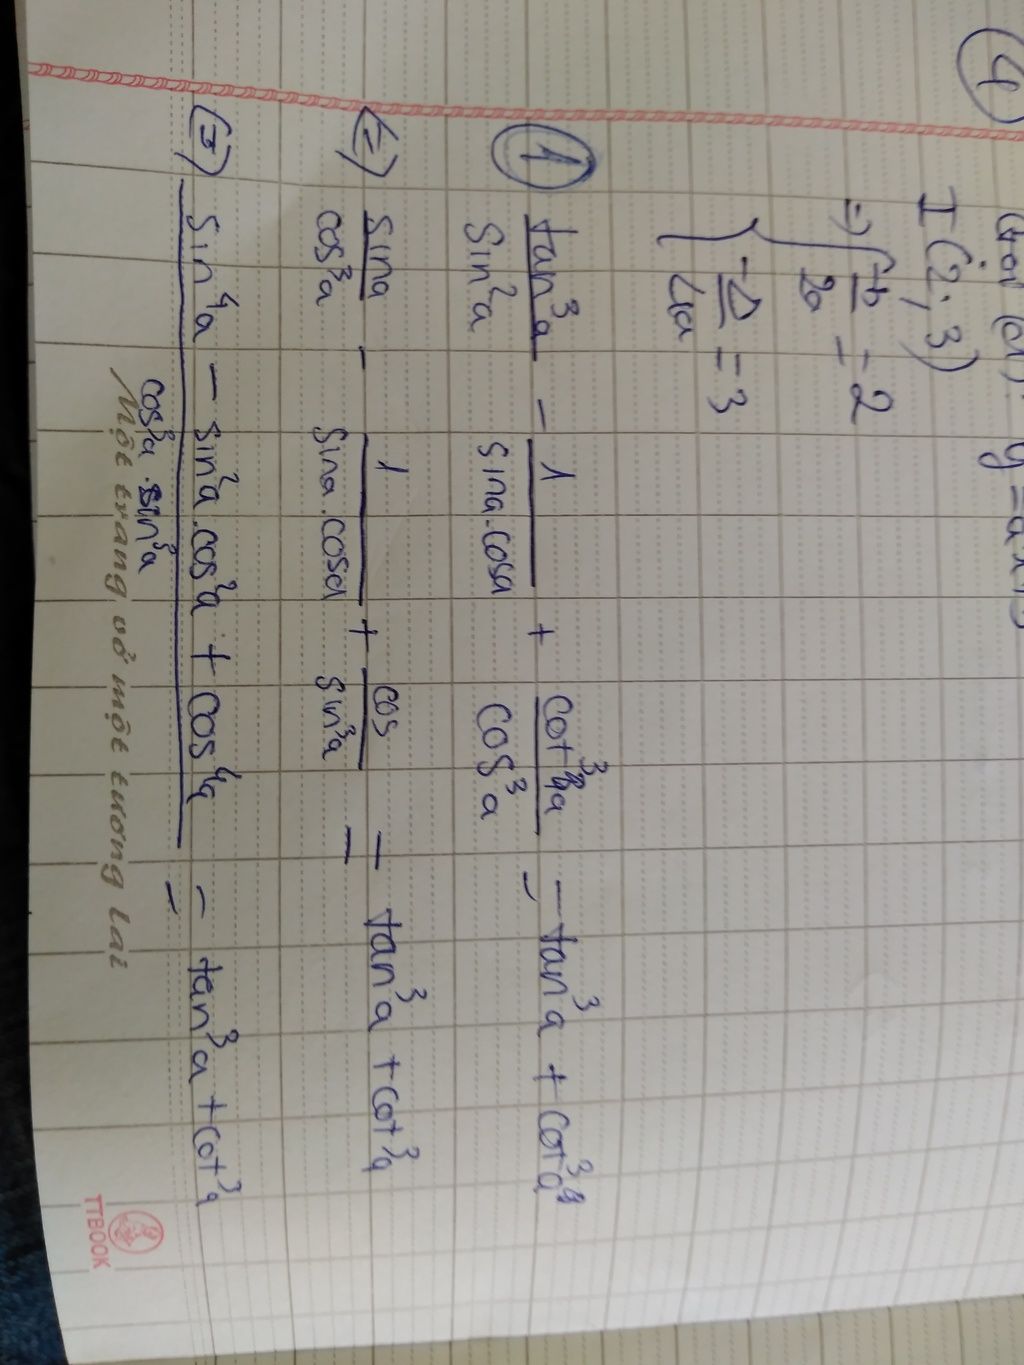 ④
I(2; 3)
=> { -b/2a = 2
-Δ/4a = 3
① tan³a/sin²a - 1/(sina.cosa) + cot³a/cos³a = tan³a + cot³a
(=) sina/cos³a - 1/(sina.cosa) + cos/sin³a = tan³a + cot³a
(=) (sin⁴a - sin²a.cos²a + cos⁴a)/(cos³a.sin³a) = tan³a + cot³a
Một trang vở một tương lai
TTBOOK